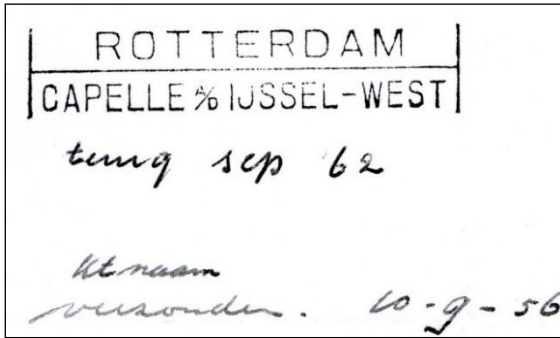 ROTTERDAM
CAPELLE A/D IJSSEL-WEST
terug sep 62
kt naam
verzonden. 10-9-56